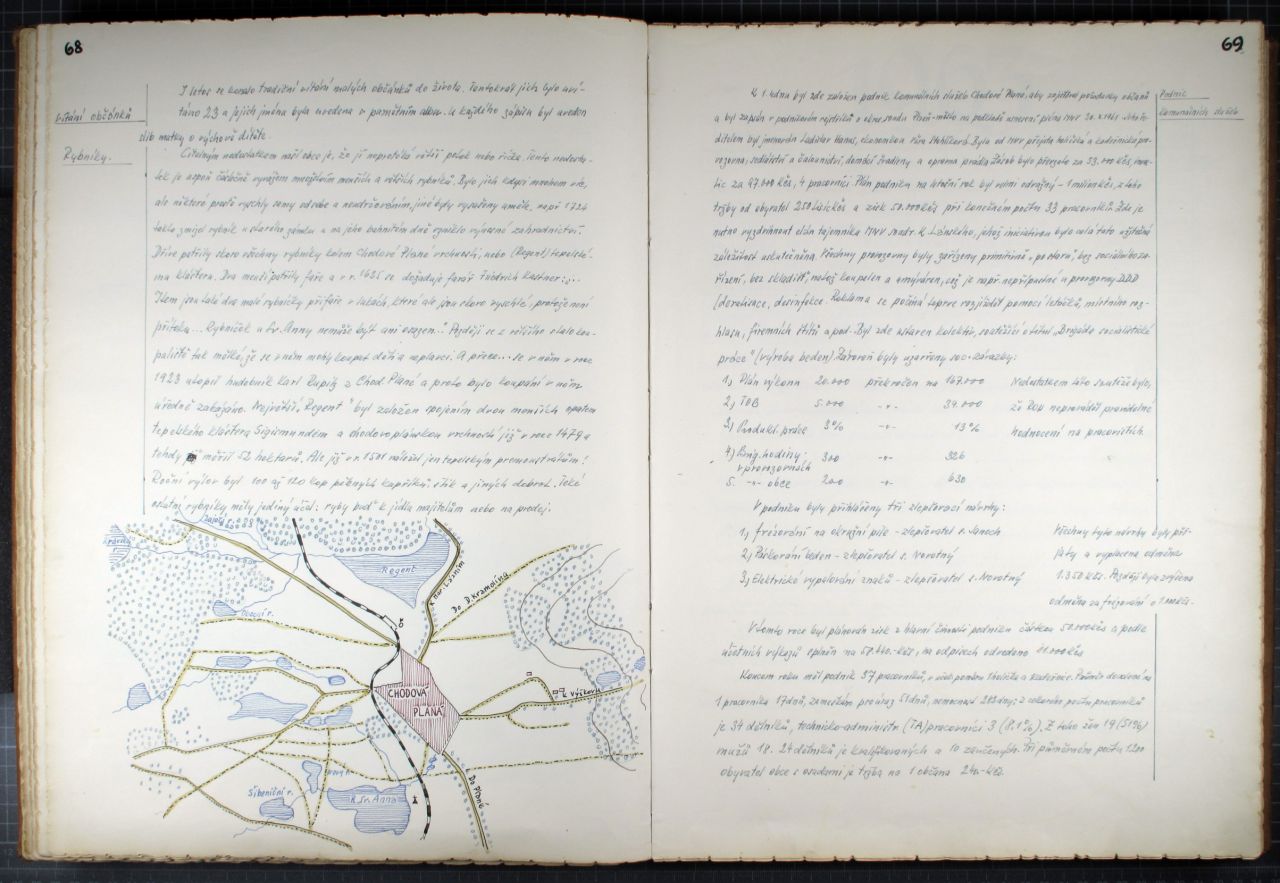 68
Vítání občánků
I letos se konalo tradiční vítání malých občánků do života. Tentokrát jich bylo uví-
táno 23 a jejich jména byla uvedena v pamětním albu. U každého zápisu byl uveden
slib matky o výchově dítěte.
Rybníky.
Citelným nedostatkem naší obce je, že jí neprotéká větší potok nebo říčka. Tento nedosta-
tek je aspoň částečně vyvážen množstvím menších a větších rybníků. Bylo jich kdysi mnohem víc,
ale některé prostě vyschly samy od sebe a neudržováním, jiné byly vysušeny uměle. např 1726
takto zmizel rybník u starého zámku a na jeho bahnitém dně vzniklo výnosné zahradnictví.
Dříve patřily skoro všechny rybníky kolem Chodové Plané vrchnosti, nebo (Regent) tepelské-
mu klášteru. Dva menší patřily faře a v r. 1625 se dožaduje farář Fridrich Kastner:...
Item jsou také dva malé rybníčky při faře v lukách, které ale jsou skoro vyschlé, protože není
přítoku... Rybníček u Sv. Anny nemůže být ani osazen." Později se z většího stalo kou-
paliště tak mělké, že se v něm mohly koupat děti a neplavci. A přece... se v něm v roce
1923 utopil hudebník Karl Rupig z Chod. Plané a proto bylo koupání v něm
úředně zakázáno. Největší "Regent" byl založen spojením dvou menších opatem
tepelského kláštera Sigismundem a chodovoplánskou vrchností již v roce 1479 a
tehdy měřil 52 hektarů. Ale již v r. 1501 náležel jen tepelským premonstrátům!
Roční výlov byl 100 až 120 kop pěkných kapříků, štik a jiných dobrot. Také
ostatní rybníky měly jediný účel: ryby buď k jídlu majitelům nebo na prodej.
Regent
K Mar. Lázním
Do D. Kramolína
CHODOVÁ
PLANÁ
K Výškovu
Do Plané
Šibeniční r.
R. Sv. Anna
69
Podnik
komunálních služeb
K 1. lednu byl zde založen podnik komunálních služeb Chodová Planá, aby zajišťoval požadavky občanů
a byl zapsán v podnikovém rejstříku o kres. soudu Plzeň-město na podkladě usnesení pléna MNV
ditelem byl jmenován Ladislav Hanus, ekonomkou Věra Stehlíková. Byla od MNV přejata holičská a kadeřnická pro-
vozovna, sedlářství a čalounictví, domácí žradiny a oprava prádla
líc za 27.000 Kčs, 4 pracovníci. Plán podniku na letošní rok byl velmi odvážný - 1 milion Kčs, z toho
tržby od obyvatel 250 tisíc Kčs a zisk 50.000 Kčs při konečném počtu 33 pracovníků. Zde je
nutno vyzdvihnout elán tajemníka MNV soudr. K. Lánského, jehož iniciativou byla celá tato užitečná
záležitost uskutečněna. Všechny provozovny byly zařízeny primitivně "po staru", bez sociálního za-
řízení, bez skladišť, natož koupelen a umýváren, což je např. nepřípustné u provozovny DDD
(deratizace, desinfekce Reklama se počíná teprve rozjíždět pomocí letáčků, místního roz-
hlasu, firemních štítů a pod. Byl zde ustaven kolektiv, soutěžící o titul "Brigáda socialistické
práce" (výroba beden). Zároveň byly uzavřeny soc. závazky:
1) Plán výkonu 20.000 překročen na 147.000 Nedostatkem této soutěže bylo,
2) TOB 5.000 -"- 39.000 že ROP neprováděl pravidelné
3) Produkt. práce 3% -"- 13% hodnocení na pracovištích.
4) Brig. hodiny:
v provozovnách 300 -"- 326
5. -"- obce 200 -"- 630
V podniku byly přihlášeny tři zlepšovací návrhy:
1) frézování na okružní pile - zlepšovatel s. Janoch Všechny tyto návrhy byly přij-
2) Páskování beden - zlepšovatel s. Novotný jaty a vyplacena odměna
3) Elektrické vypalování znaků - zlepšovatel s. Novotný 1.350 Kčs. Později byla zvýšena
odměna za frézování o 1.000 Kčs.
V tomto roce byl plánován zisk z hlavní činnosti podniku částkou 50.000 Kčs a podle
účetních výkazů splněn na Kčs, na odpisech odvedeno 11.000 Kčs
Koncem roku měl podnik 37 pracovníků, v čele
1 pracovníka 17 dnů, zameškáno pro úraz 51 dnů, nemocnost 282 dny; z celkového počtu pracovníků
je 34 dělníků, technicko-administr. (TA) pracovníci 3 (8,1%). Z toho žen 19 (51%)
mužů 18. 24 dělníků je kvalifikovaných a 10 zaučených. Při průměrném počtu
obyvatel obce s osadami je tržba na 1 občana 240.- Kčs.